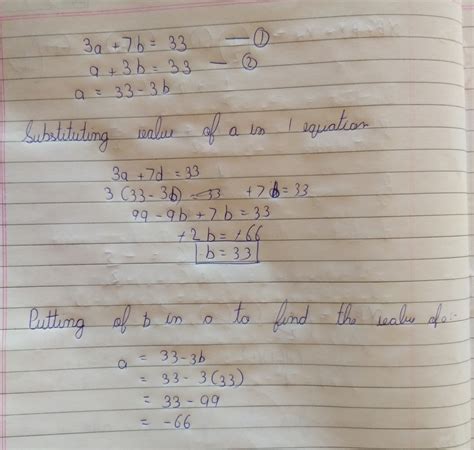 3a + 7b = 33 — ①
a + 3b = 33 — ②
a = 33 - 3b
Substituting value of a in 1 equation
3a + 7d = 33
3 (33 - 3b) + 7b = 33
99 - 9b + 7b = 33
+2b = +66
b = 33
Putting of b in a to find the value of a:-
a = 33 - 3b
= 33 - 3(33)
= 33 - 99
= -66